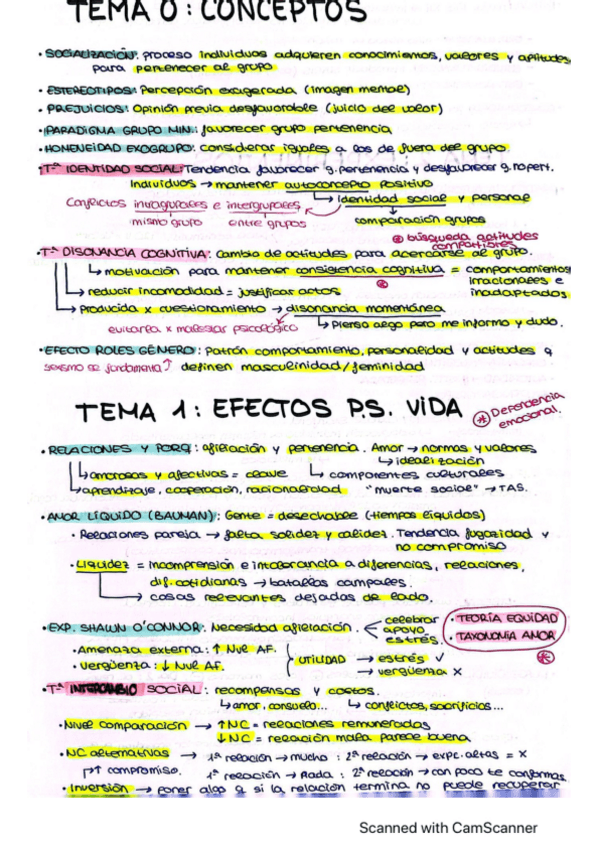 TEMA 0: CONCEPTOS
· SOCIALIZACIÓN: proceso individuos adquieren conocimientos, valores y aptitudes
para pertenecer al grupo
· ESTEREOTIPOS: Percepción exagerada (imagen mental)
· PREJUICIOS: Opinión previa desfavorable (juicio del valor)
· PARADIGMA GRUPO MIN.: favorecer grupo pertenencia
· HONENEIDAD EXOGRUPO: considerar iguales a los de fuera del grupo.
· Tª IDENTIDAD SOCIAL: Tendencia favorecer g. pertenencia y desfavorecer g. no pert.
Individuos → mantener autoconcepto positivo
Conflictos intragrupales e intergrupales
↳ Identidad social y personal
mismo grupo entre grupos
comparación grupos
* búsqueda actitudes compatibles
· Tª DISONANCIA COGNITIVA: Cambio de actitudes para acercarse al grupo.
↳ motivación para mantener consistencia cognitiva = comportamientos
irracionales e
inadaptados
*
↳ reducir incomodidad = justificar actos
↳ Producida x cuestionamiento → disonancia momentánea
evitarla x malestar psicológico
↳ Pienso algo pero me informo y dudo.
· EFECTO ROLES GÉNERO: Patrón comportamiento, personalidad y actitudes q
sexismo se fundamenta ↑ definen masculinidad/feminidad
TEMA 1: EFECTOS PS. VIDA
* Dependencia emocional.
· RELACIONES Y PORQ: afiliación y pertenencia. Amor → normas y valores
↳ idealización
↳ amorosas y afectivas = clave ↳ componentes culturales
↳ aprendizaje, cooperación, racionalidad "muerte social" → TAS.
· AMOR LÍQUIDO (BAUMAN): Gente = desechable (tiempos líquidos)
· Relaciones pareja → falta solidez y calidez. Tendencia fugacidad y
no compromiso
· Liquidez = Incomprensión e intolerancia a diferencias, relaciones,
dif. cotidianas → batallas campales.
→ cosas relevantes dejadas de lado.
· EXP. SHAWN O'CONNOR: Necesidad afiliación.
celebrar
apoyo
estrés.
· TEORÍA EQUIDAD
· TAXONOMÍA AMOR
*
· Amenaza externa: ↑ Nvl AF.
· Vergüenza: ↓ Nvl AF.
UTILIDAD → estrés ✓
→ vergüenza X
· Tª INTERCAMBIO SOCIAL: recompensas y costos.
↳ amor, consuelo... ↳ conflictos, sacrificios...
· Nivel comparación → ↑NC = relaciones remuneradas
↓NC = relación mala parece buena
· NC alternativas → 1ª relación → mucho : 2ª relación → expc. altas = X
↑ compromiso. 1ª relación → Nada : 2ª relación → con poco te conformas.
· Inversión → poner algo q si la relación termina no puede recuperar
Scanned with CamScanner